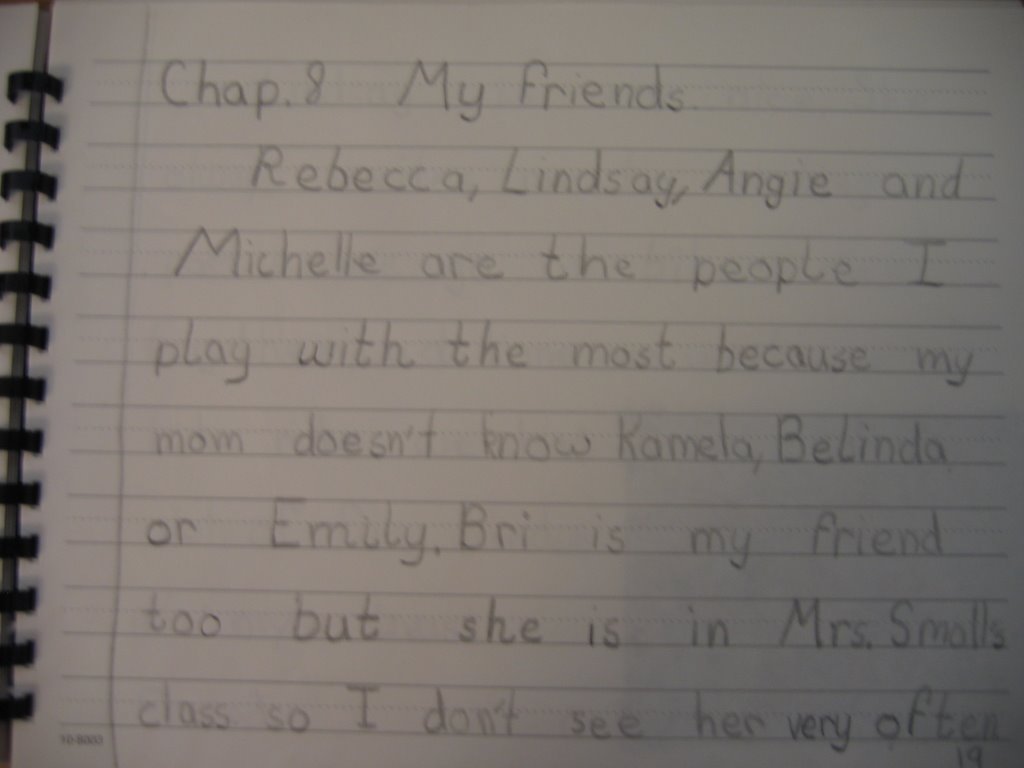 Chap. 8 My friends
Rebecca, Lindsay, Angie and
Michelle are the people I
play with the most because my
mom doesn't know Kamela, Belinda
or Emily. Bri is my friend
too but she is in Mrs. Smalls
class so I don't see her very often
19